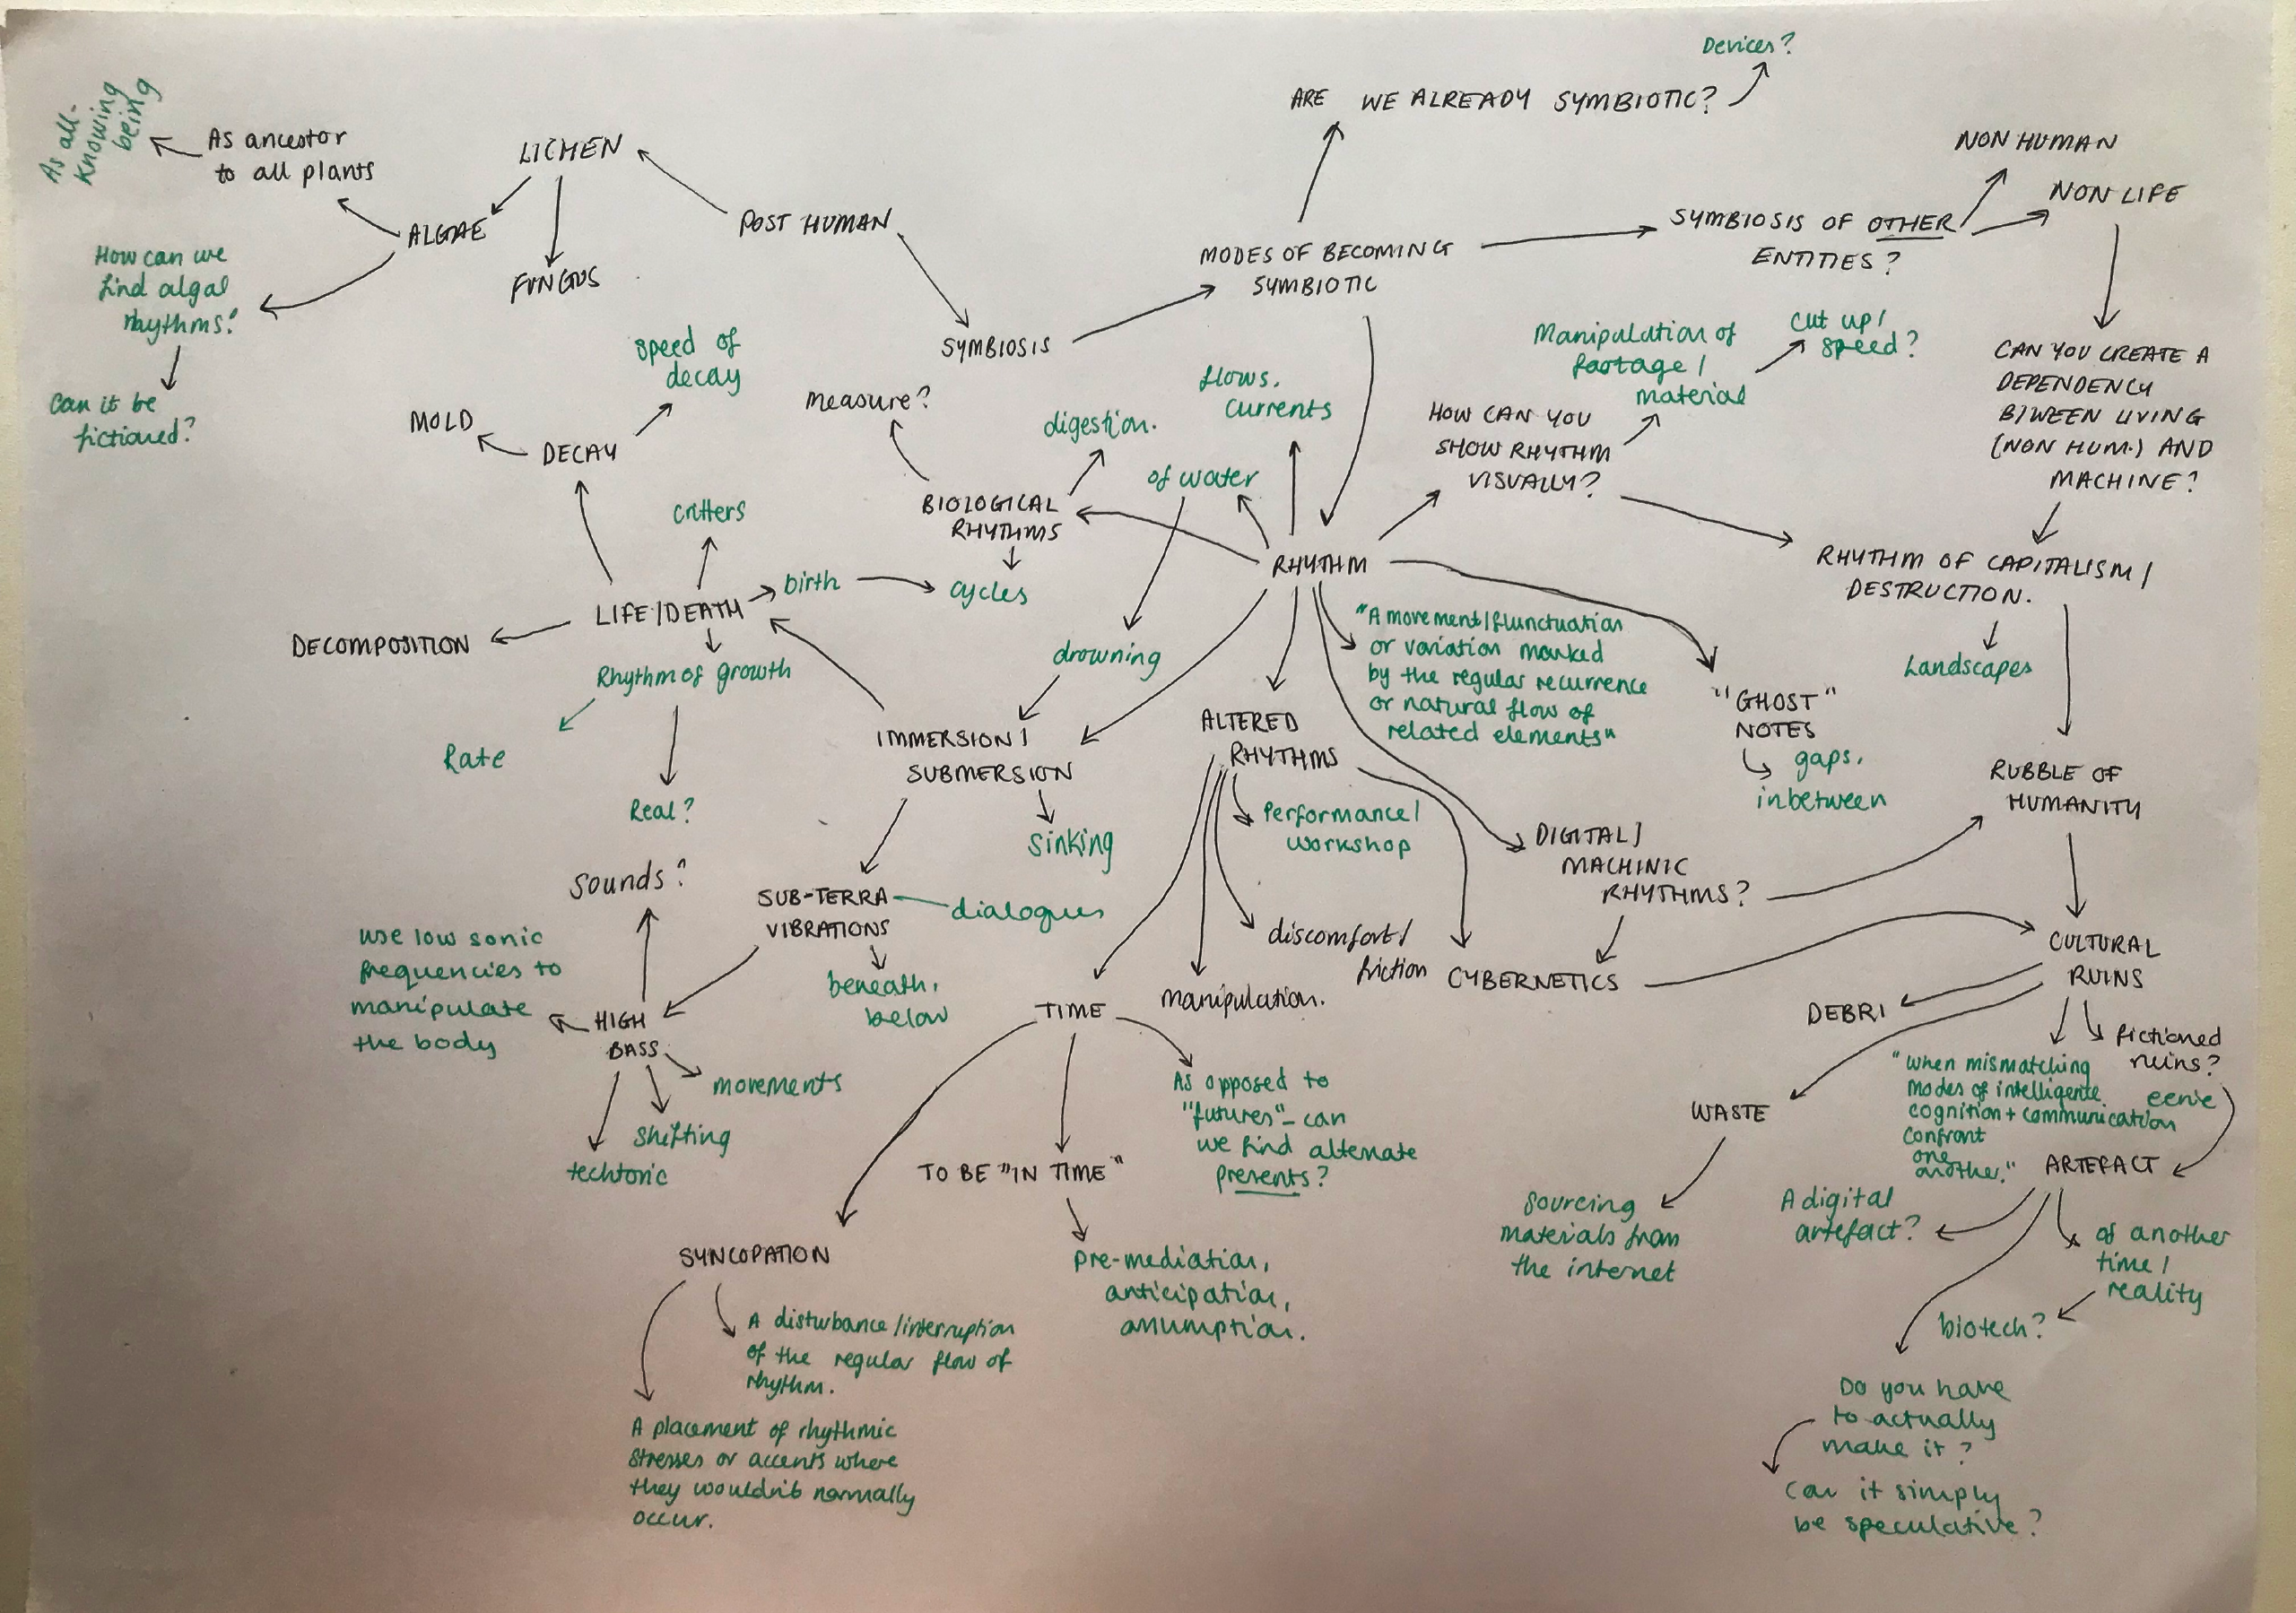 Devices?
ARE WE ALREADY SYMBIOTIC?
As all-
knowing
being
As ancestor
to all plants
LICHEN
ALGAE
FUNGUS
POST HUMAN
How can we
find algal
rhythms?
Can it be
fictioned?
SYMBIOSIS
MODES OF BECOMING
SYMBIOTIC
SYMBIOSIS OF OTHER
ENTITIES?
NON HUMAN
NON LIFE
CAN YOU CREATE A
DEPENDENCY
BTWEEN LIVING
(NON HUM.) AND
MACHINE?
Manipulation of
footage /
material
cut up /
speed?
HOW CAN YOU
SHOW RHYTHM
VISUALLY?
speed of
decay
MOLD
DECAY
measure?
digestion.
flows,
currents
of water
BIOLOGICAL
RHYTHMS
cycles
critters
birth
LIFE/DEATH
DECOMPOSITION
Rhythm of growth
Rate
Real?
RHYTHM
RHYTHM OF CAPITALISM /
DESTRUCTION.
Landscapes
drowning
IMMERSION /
SUBMERSION
sinking
"A movement/flunctuation
or variation marked
by the regular recurrence
or natural flow of
related elements"
ALTERED
RHYTHMS
"GHOST"
NOTES
gaps,
inbetween
RUBBLE OF
HUMANITY
Performance /
workshop
DIGITAL /
MACHINIC
RHYTHMS?
Sounds?
SUB-TERRA
VIBRATIONS
dialogues
beneath,
below
use low sonic
frequencies to
manipulate
the body
HIGH
BASS
movements
shifting
techtonic
discomfort /
friction
manipulation.
CYBERNETICS
CULTURAL
RUINS
DEBRI
fictioned
ruins?
"when mismatching
modes of intelligence
cognition + communication
confront
one
another."
eerie
WASTE
ARTEFACT
TIME
As opposed to
"futures" - can
we find alternate
presents?
TO BE "IN TIME"
pre-mediation,
anticipation,
assumption.
SYNCOPATION
A disturbance /interruption
of the regular flow of
rhythm.
A placement of rhythmic
stresses or accents where
they wouldn't normally
occur.
sourcing
materials from
the internet
A digital
artefact?
of another
time /
reality
biotech?
Do you have
to actually
make it?
Can it simply
be speculative?